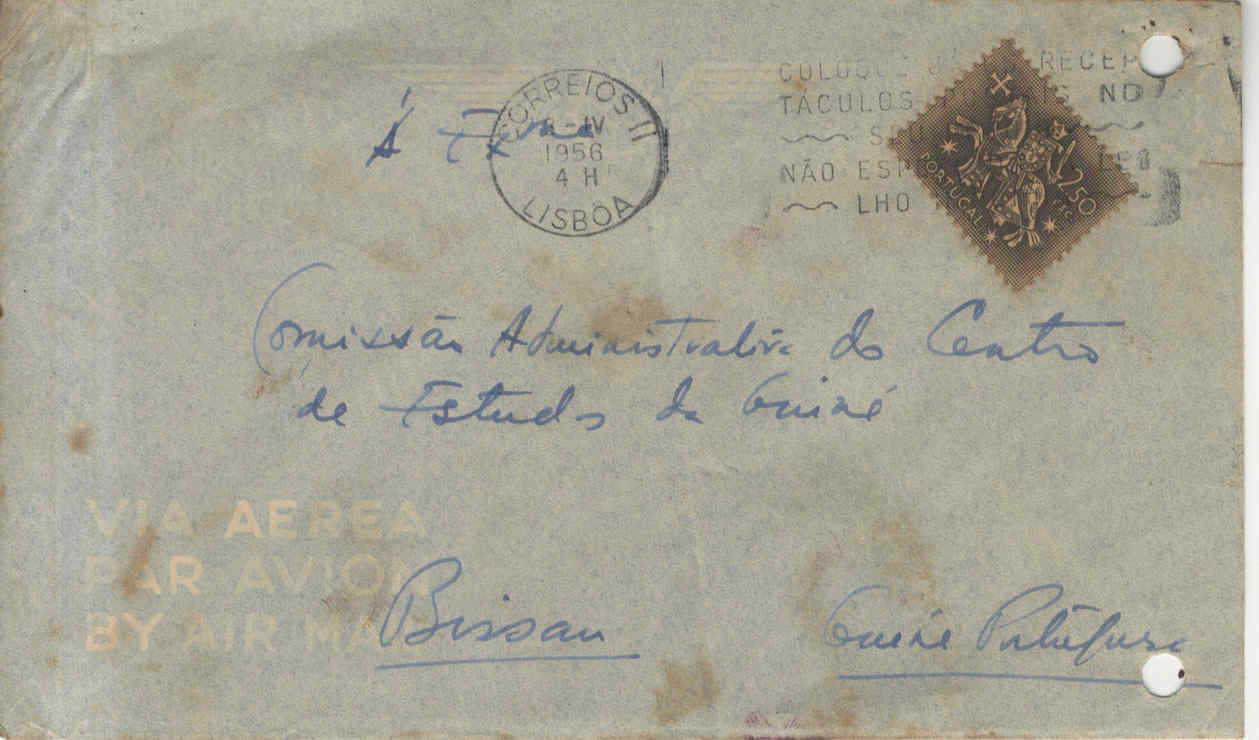 CORREIOS II
-IV
1956
4 H
LISBOA
COLOQUE RECEP
TÁCULOS NO
NÃO ESP
LHO
PORTUGAL
2$50
Á Exma
Comissão Administrativa do Centro
de Estudos da Guiné
VIA AEREA
PAR AVION
BY AIR MAIL
Bissau
Guiné Portuguesa